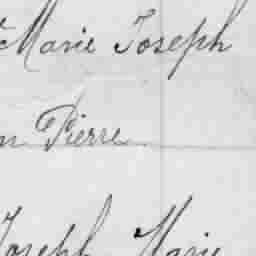 Marie Joseph
n Pierre
Joseph Marie